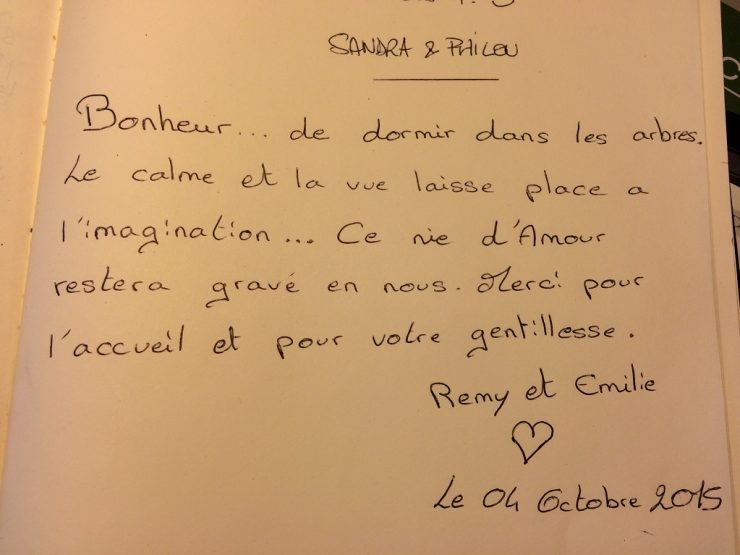 SANDRA & PHILOU
Bonheur... de dormir dans les arbres.
Le calme et la vue laisse place a
l'imagination... Ce nie d'Amour
restera gravé en nous. Merci pour
l'accueil et pour votre gentillesse.
Remy et Emilie
Le 04 Octobre 2015